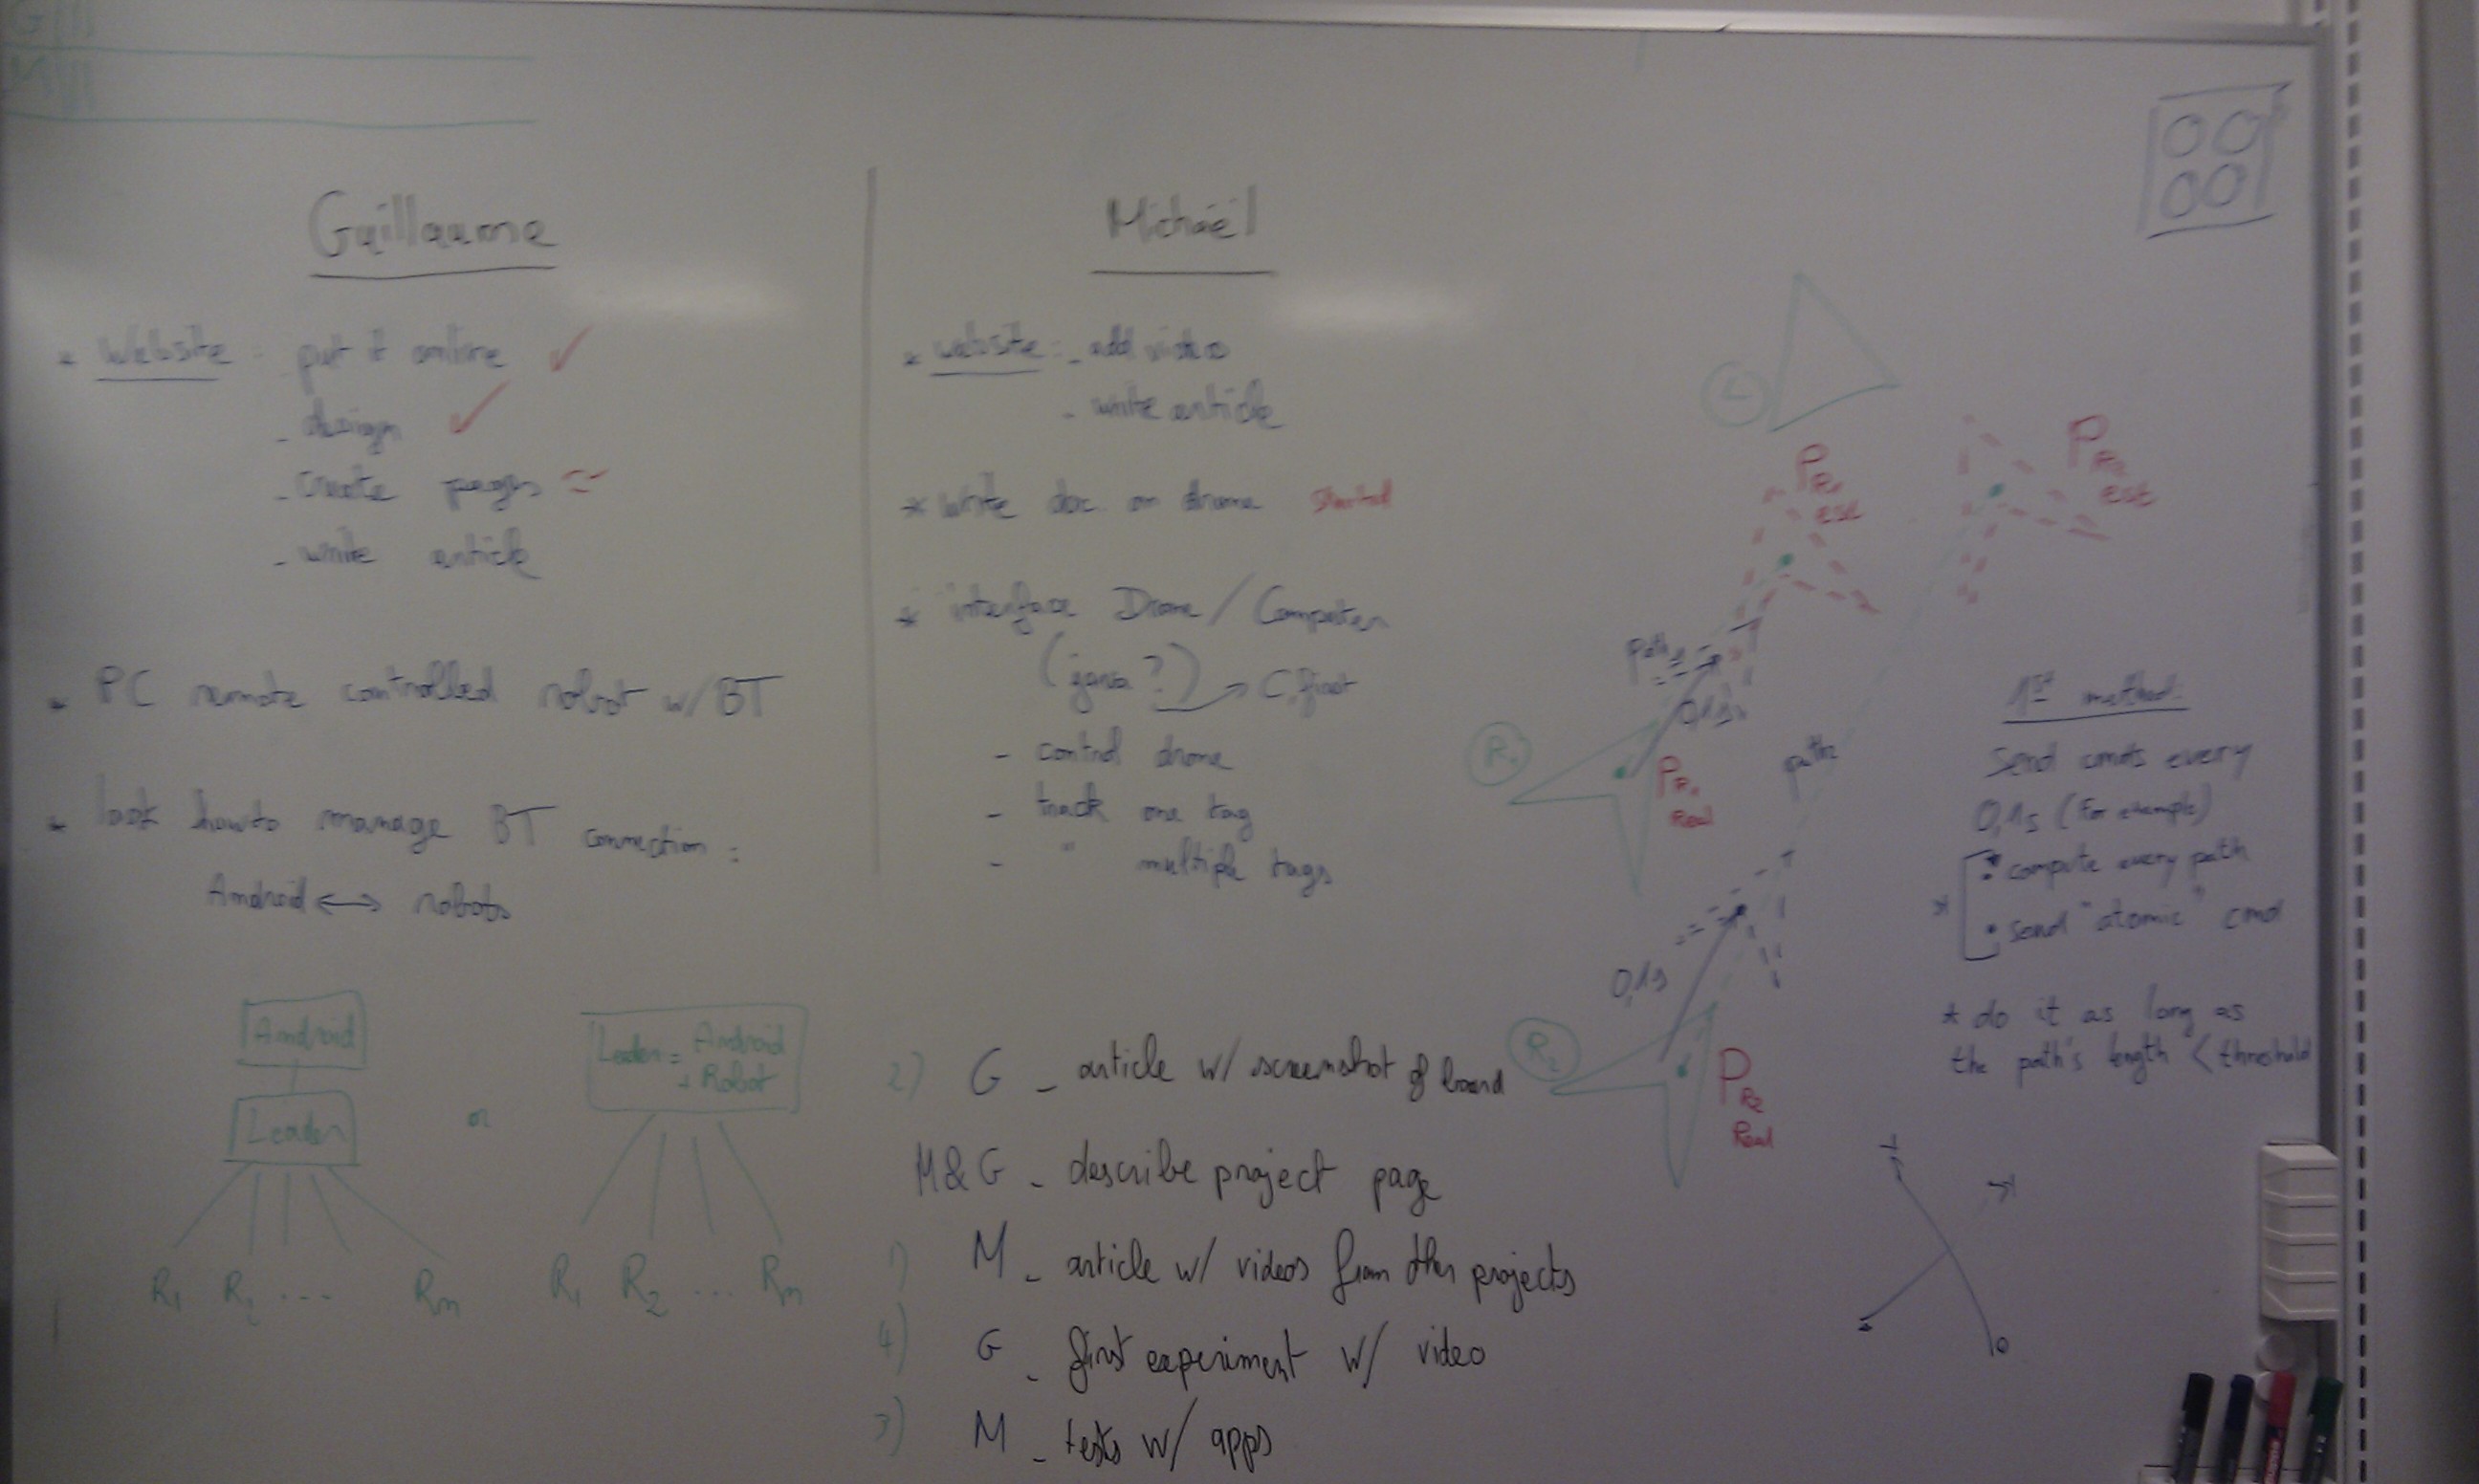 G |||
M |||
Guillaume
* Website : put it online ✓
- design ✓
- create pages ≃
- write article
* PC remote controlled robot w/ BT
* look how to manage BT connection :
Android ↔ robots
Android
Leader
R1 Ri ... Rn
or
Leader = Android
+ Robot
R1 R2 ... Rn
Michaël
* website : - add video
- write article
* write doc. on drone started
* interface Drone / Computer
(java ?) → C, first
- control drone
- track one tag
- " multiple tags
2) G - article w/ screenshot of board
M & G - describe project page
1) M - article w/ videos from other projects
4) G - first experiment w/ video
3) M - tests w/ apps
L
PR1
est
PR2
est
path1
0,1s
R1
PR1
Real
path2
0,1s
R2
PR2
Real
1st method:
Send cmds every
0,1s (For example)
* • compute every path
• send "atomic" cmd
* do it as long as
the path's length < threshold